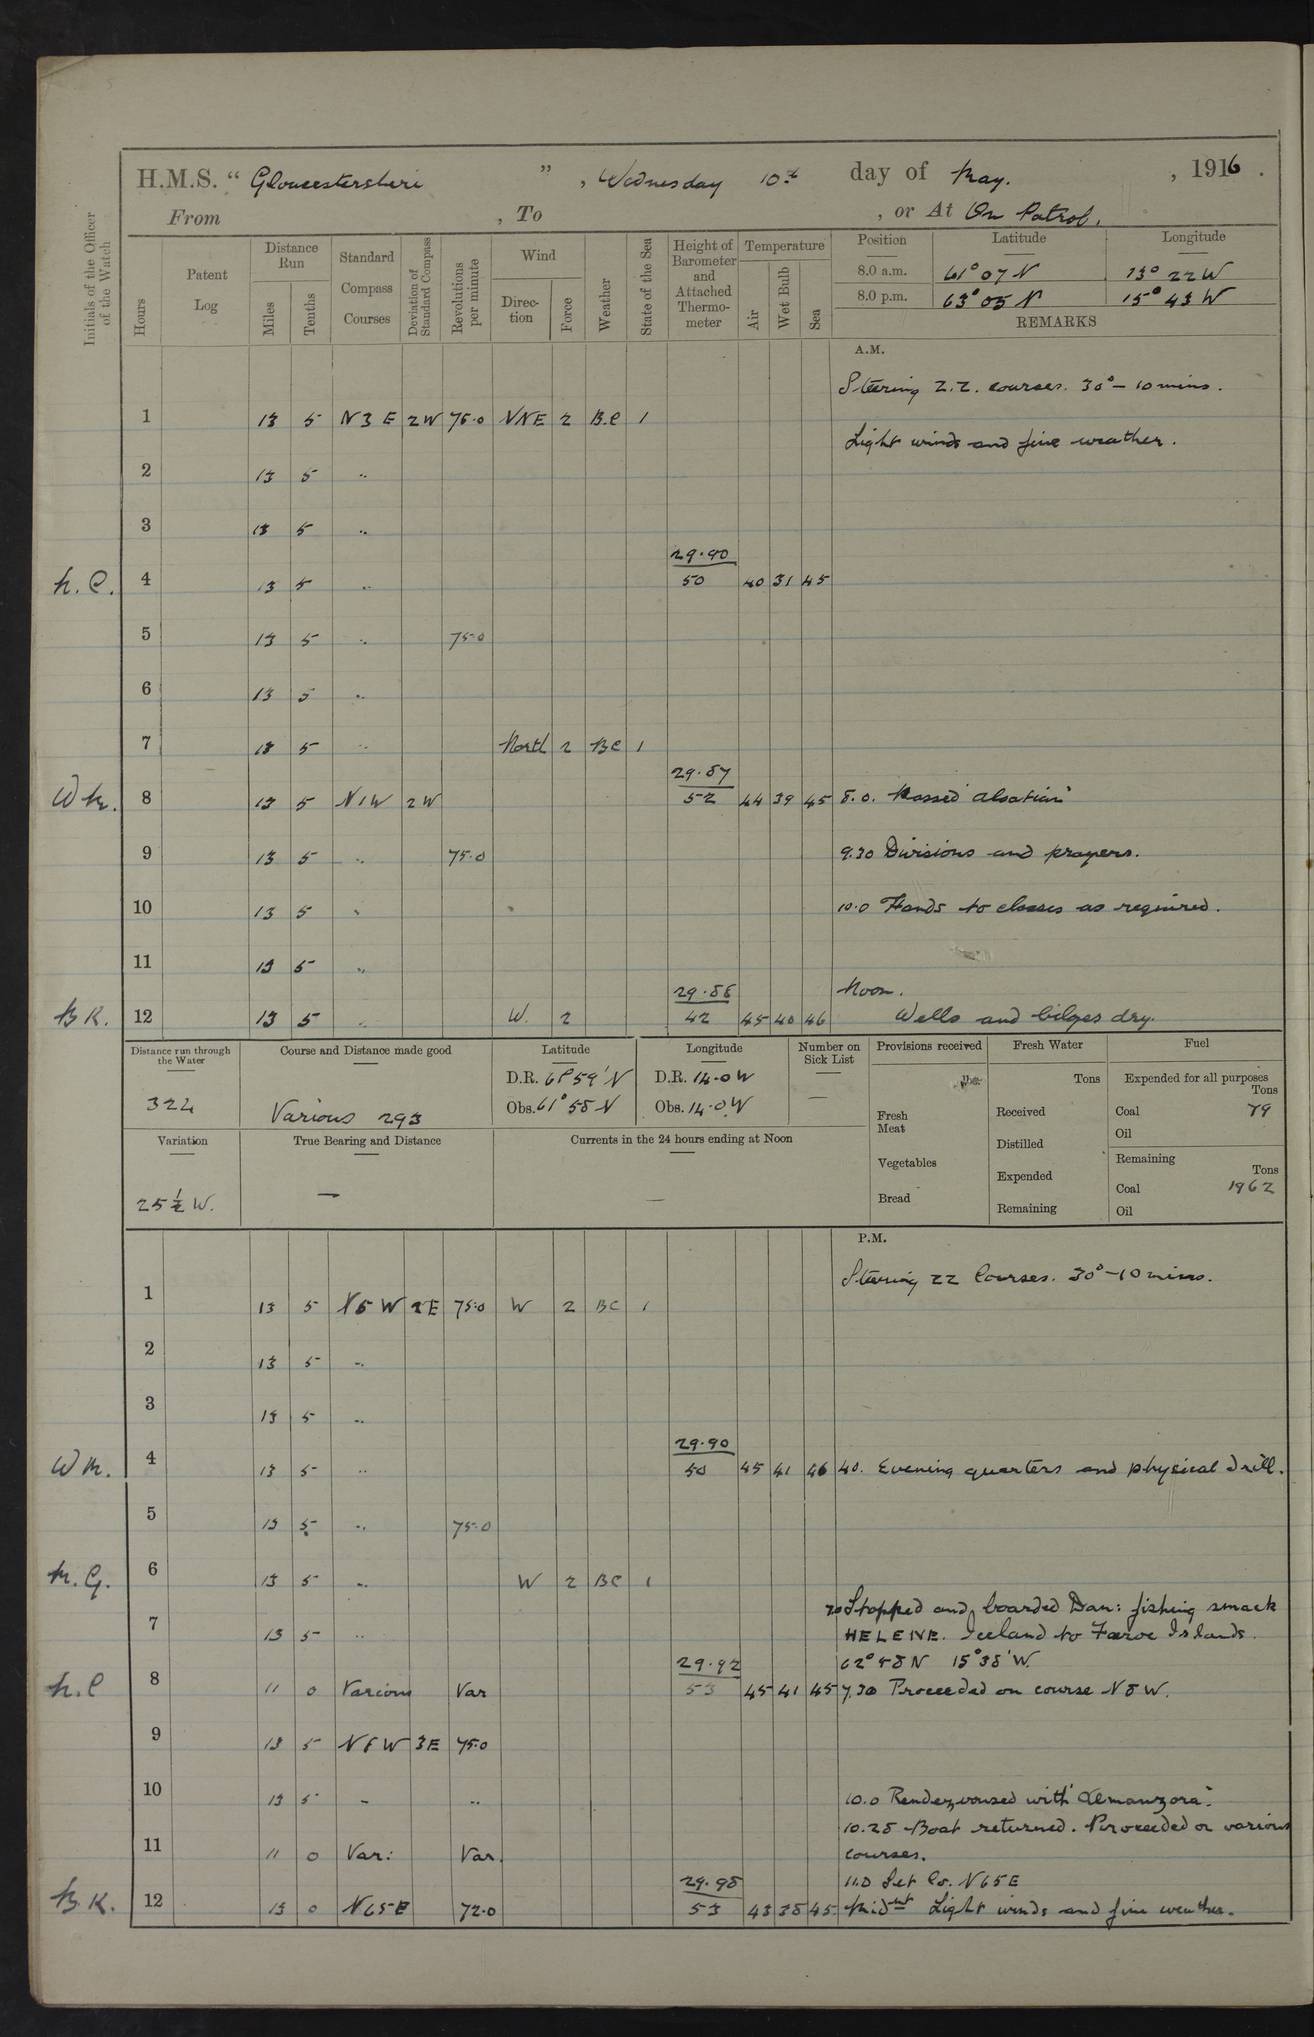 H.M.S. “ Gloucestershire ” , Wednesday 10th day of May. , 1916 .
From , To , or At On Patrol.
Initials of the Officer of the Watch
Hours
Patent Log
Distance Run Miles Tenths
Standard Compass Courses
Deviation of Standard Compass
Revolutions per minute
Wind Direc-tion Force
Weather
State of the Sea
Height of Barometer and Attached Thermo-meter
Temperature Air Wet Bulb Sea
Position Latitude Longitude
8.0 a.m. 61° 07 N 13° 22 W
8.0 p.m. 63° 05 N 15° 43 W
REMARKS
A.M.
Steering Z.Z. courses. 30° – 10 mins.
1 13 5 N 3 E 2 W 75.0 NNE 2 B.C 1
Light winds and fine weather.
2 13 5 ..
3 13 5 ..
29.90
4 13 5 .. 50 40 31 45
5 13 5 .. 75.0
6 13 5 ..
7 13 5 .. North 2 BC 1
29.87
8 13 5 N 1 W 2 W 52 44 39 45 8.0. Passed "Alsatian"
9 13 5 .. 75.0 9.30 Divisions and prayers.
10 13 5 .. 10.0 Hands to classes as required.
11 13 5 ..
29.88 Noon.
B K. 12 13 5 .. W. 2 42 45 40 46 Wells and bilges dry.
Distance run through the Water 324
Course and Distance made good Various 293
Latitude D.R. 61° 59' N Obs. 61° 58 N
Longitude D.R. 14.0 W Obs. 14.0 W
Number on Sick List —
Provisions received Fresh Meat Vegetables Bread
Fresh Water Tons Received Distilled Expended Remaining
Fuel Expended for all purposes Tons Coal 79 Oil
Remaining Tons Coal 1962 Oil
Variation 25 ½ W.
True Bearing and Distance —
Currents in the 24 hours ending at Noon —
P.M.
Steering ZZ Courses. 30° – 10 mins.
1 13 5 N 5 W 2 E 75.0 W 2 BC 1
2 13 5 ..
3 13 5 ..
29.90
4 13 5 .. 50 45 41 46 4 0. Evening quarters and physical drill.
5 13 5 .. 75.0
M. G. 6 13 5 .. W 2 BC 1
7.0 Stopped and boarded Dan: fishing smack
7 13 5 .. HELENE. Iceland to Faroe Islands.
29.92 62° 58 N 15° 38' W.
8 11 0 Various Var 53 45 41 45 7.30 Proceeded on course N 8 W.
9 13 5 N 8 W 3 E 75.0
10 13 5 .. .. 10.0 Rendezvoused with "Almanzora".
10.28 Boat returned. Proceeded on various
11 11 0 Var: Var. courses.
29.98 11.0 Set Co. N 65 E
B. K. 12 13 0 N 65 E 72.0 53 43 38 45 Midnt Light winds and fine weather.